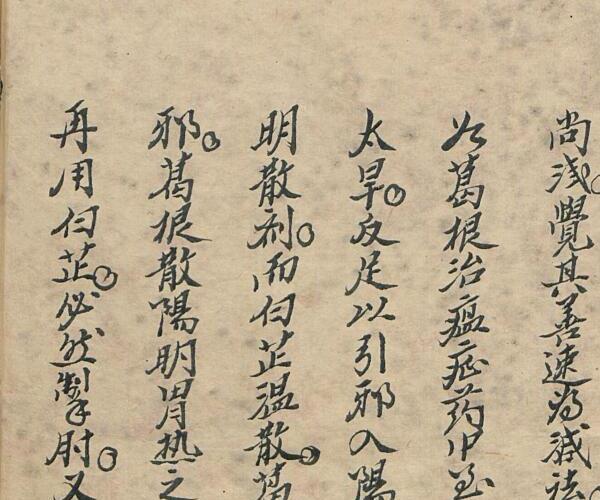 尚浅。覺其善速為減法
如葛根治瘟症药中至
太早。反足以引邪入陽
明散剂。而白芷温散。葛
邪。葛根散陽明胃热之
再用白芷。必然掣肘。又